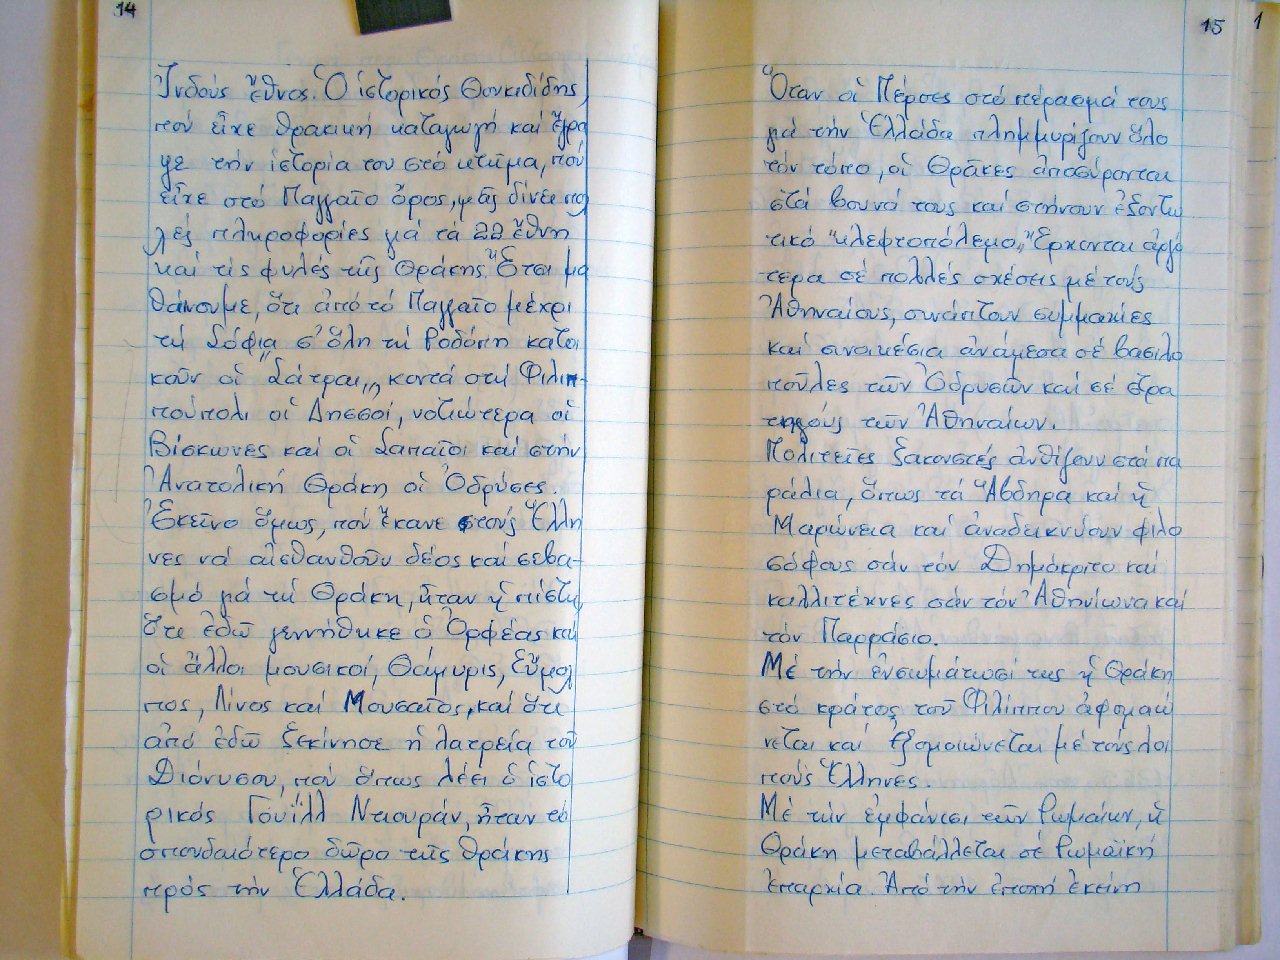 14
Ἰνδούς ἔθνος. Ὁ ἱστορικός Θουκιδίδης,
πού εἶχε θρακική καταγωγή καί ἔγρα
ψε τήν ἱστορία του στό κτῆμα, πού
εἶχε στό Παγγαῖο ὄρος, μᾶς δίνει πο
λές πληροφορίες γιά τά 22 ἔθνη
καί τίς φυλές τῆς Θράκης. Ἔτσι μα
θαίνουμε, ὅτι ἀπό τό Παγγαῖο μέχρι
τή Σόφια σ' ὅλη τή Ροδόπη κατοι
κοῦν οἱ "Σάτραι", κοντά στή Φιλιπ-
πούπολι οἱ Δησσοί, νοτιώτερα οἱ
Βίσκωνες καί οἱ Σαπαῖοι καί στήν
Ἀνατολική Θράκη οἱ Ὀδρύσες.
Ἐκεῖνο ὅμως, πού ἔκανε τούς Ἕλλη
νες νά αἰσθανθοῦν δέος καί σεβα-
σμό γιά τή Θράκη, ἦταν ἡ πίστη,
ὅτι ἐδῶ γεννήθηκε ὁ Ὀρφέας καί
οἱ ἄλλοι μουσικοί, Θάμυρις, Εὔμολ
πος, Λίνος καί Μουσαῖος, καί ὅτι
ἀπό ἐδῶ ξεκίνησε ἡ λατρεία τοῦ
Διόνυσου, πού ὅπως λέει ὁ ἱστο
ρικός Γουΐλλ Ντιουράν, ἦταν τό
σπουδαιότερο δῶρο τῆς Θράκης
πρός τήν Ἑλλάδα.
15
Ὅταν οἱ Πέρσες στό πέρασμά τους
γιά τήν Ἑλλάδα πλημμυρίζουν ὅλο
τόν τόπο, οἱ Θρᾶκες ἀποσύρονται
στά βουνά τους καί στήνουν ἐξοντω
τικό "κλεφτοπόλεμο". Ἔρχονται ἀργό
τερα σέ πολλές σχέσεις μέ τούς
Ἀθηναίους, συνάπτουν συμμαχίες
καί συνοικέσια ἀνάμεσα σέ βασιλο
ποῦλες τῶν Ὀδρυσῶν καί σέ στρα
τηγούς τῶν Ἀθηναίων.
Πολιτεῖες ξακουστές ἀνθίζουν στά πα
ράλια, ὅπως τά Ἄβδηρα καί ἡ
Μαρώνεια καί ἀναδεικνύουν φιλο
σόφους σάν τόν Δημόκριτο καί
καλλιτέχνες σάν τόν Ἀθηνίωνα καί
τόν Παρράσιο.
Μέ τήν ἐνσωμάτωσί της ἡ Θράκη
στό κράτος τοῦ Φιλίππου ἀφομοιώ
νεται καί ἐξομοιώνεται μέ τούς λοι
πούς Ἕλληνες.
Μέ τήν ἐμφάνισι τῶν Ρωμαίων, ἡ
Θράκη μεταβάλλεται σέ Ρωμαϊκή
ἐπαρχία. Ἀπό τήν ἐποχή ἐκείνη
1